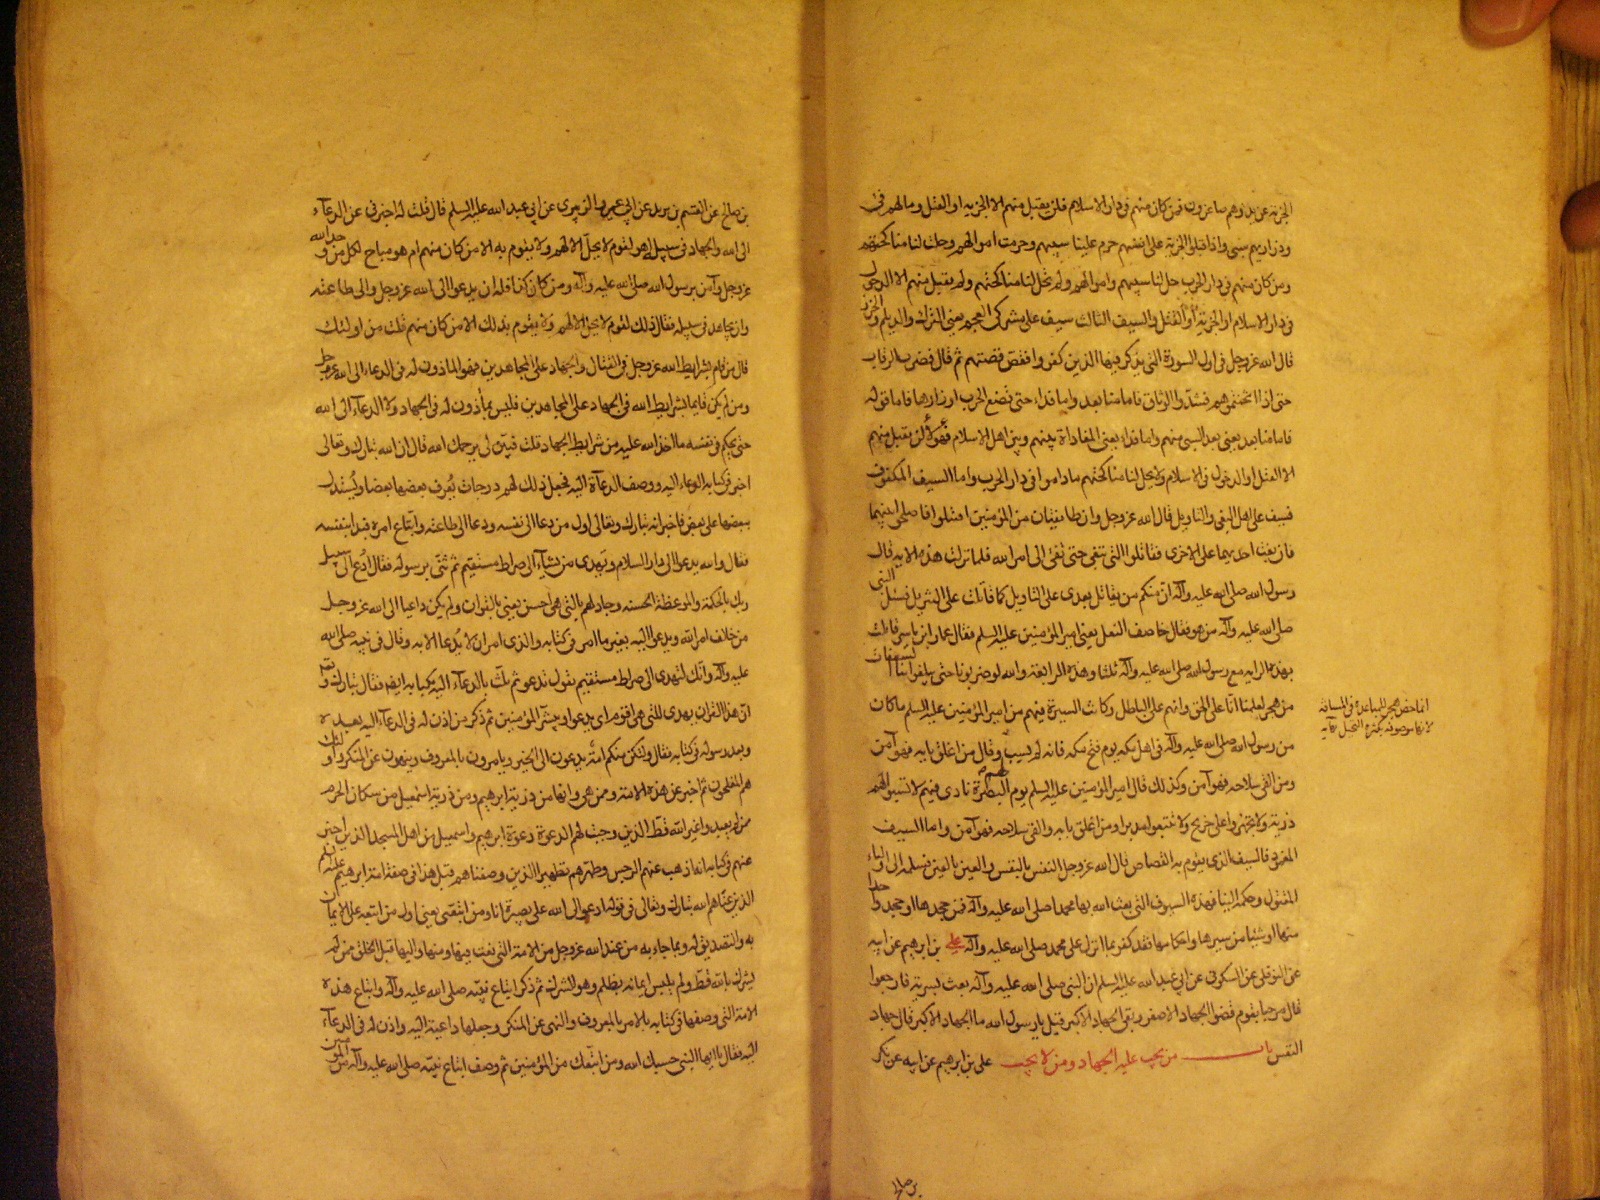 الجزية عن يد وهم صاغرون فمن كان منهم في دار الاسلام فلن يقبل منهم الا الجزية او القتل وما لهم فئ
وذراريهم سبي واذا قبلوا الجزية على انفسهم حرم علينا سبيهم وحرمت اموالهم وحلت لنا مناكحتهم
ومن كان منهم في دار الحرب حل لنا سبيهم واموالهم ولم تحل لنا مناكحتهم ولم يقبل منهم الا الدخول
في دار الاسلام او الجزية او القتل والسيف الثالث سيف على مشركي العجم يعني الترك والديلم والخزر
قال الله عز وجل في اول السورة التي يذكر فيها الذين كفروا فقص قصتهم ثم قال فضرب الرقاب
حتى اذا اثخنتموهم فشدوا الوثاق فاما منا بعد واما فداء حتى تضع الحرب اوزارها فاما قوله
فاما منا بعد يعني بعد السبي منهم واما فداء يعني المفاداة بينهم وبين اهل الاسلام فهؤلاء لن يقبل منهم
الا القتل او الدخول في الاسلام ولا يحل لنا مناكحتهم ما داموا في دار الحرب واما السيف المكفوف
فسيف على اهل البغي والتاويل قال الله عز وجل وان طائفتان من المؤمنين اقتتلوا فاصلحوا بينهما
فان بغت احديهما على الاخرى فقاتلوا التي تبغي حتى تفئ الى امر الله فلما نزلت هذه الاية قال
رسول الله صلى الله عليه وآله ان منكم من يقاتل بعدي على التاويل كما قاتلت على التنزيل فسئل النبي
صلى الله عليه وآله من هو فقال خاصف النعل يعني امير المؤمنين عليه السلم فقال عمار بن ياسر قاتلت
بهذه الراية مع رسول الله صلى الله عليه وآله ثلثا وهذه الرابعة والله لو ضربونا حتى يبلغوا بنا السعفات
من هجر لعلمنا انا على الحق وانهم على الباطل وكانت السيرة فيهم من امير المؤمنين عليه السلم ما كان
من رسول الله صلى الله عليه وآله في اهل مكة يوم فتح مكة فانه لم يسب وقال من اغلق بابه فهو آمن
ومن القى سلاحه فهو آمن وكذلك قال امير المؤمنين عليه السلم يوم البصرة نادى فيهم لا تسبوا لهم
ذرية ولا تجهزوا على جريح ولا تتبعوا مدبرا ومن اغلق بابه والقى سلاحه فهو آمن واما السيف
المغمود فالسيف الذي يقوم به القصاص قال الله عز وجل النفس بالنفس والعين بالعين فسله الى اولياء
المقتول وحكمه الينا فهذه السيوف التي بعث الله بها محمدا صلى الله عليه وآله فمن جحدها او جحد واحدا
منها او شيئا من سيرها واحكامها فقد كفر بما انزل على محمد صلى الله عليه وآله علي بن ابرهيم عن ابيه
عن النوفلي عن السكوني عن ابي عبد الله عليه السلم ان النبي صلى الله عليه وآله بعث بسرية فلما رجعوا
قال مرحبا بقوم قضوا الجهاد الاصغر وبقي الجهاد الاكبر قيل يا رسول الله ما الجهاد الاكبر قال جهاد
النفس باب من يجب عليه الجهاد ومن لا يجب علي بن ابرهيم عن ابيه عن بكر
انما خص هجر للمباعدة في المسافة
بن صالح
بن صالح عن القسم بن بريد عن ابي عمرو الزبيري عن ابي عبد الله عليه السلم قال قلت له اخبرني عن الدعاء
الى الله والجهاد في سبيله اهو لقوم لا يحل الا لهم ولا يقوم به الا من كان منهم ام هو مباح لكل من وحد الله
عز وجل وآمن برسول الله صلى الله عليه وآله ومن كان كذا فله ان يدعو الى الله عز وجل والى طاعته
وان يجاهد في سبيله فقال ذلك لقوم لا يحل الا لهم ولا يقوم بذلك الا من كان منهم قلت من اولئك
قال من قام بشرايط الله عز وجل في القتال والجهاد على المجاهدين فهو الماذون له في الدعاء الى الله عز وجل
ومن لم يكن قايما بشرايط الله في الجهاد على المجاهدين فليس بمأذون له في الجهاد ولا الدعاء الى الله
حتى يحكم في نفسه ما اخذ الله عليه من شرايط الجهاد قلت فبين لي يرحمك الله قال ان الله تبارك وتعالى
اخبر في كتابه الدعاء اليه ووصف الدعاة اليه فجعل ذلك لهم درجات يعرف بعضها بعضا ويستدل
ببعضها على بعض فاخبر انه تبارك وتعالى اول من دعا الى نفسه ودعا الى طاعته واتباع امره فبدا بنفسه
فقال والله يدعو الى دار السلام ويهدي من يشاء الى صراط مستقيم ثم ثنى برسوله فقال ادع الى سبيل
ربك بالحكمة والموعظة الحسنة وجادلهم بالتي هي احسن يعني بالقران ولم يكن داعيا الى الله عز وجل
من خالف امر الله ويدعو اليه بغير ما امر في كتابه والذي امر ان لا يدعا الا به وقال في نبيه صلى الله
عليه وآله وانك لتهدي الى صراط مستقيم يقول تدعو ثم ثلث بالدعاء اليه بكتابه ايضا فقال تبارك وتعالى
ان هذا القران يهدي للتي هي اقوم اي يدعو ويبشر المؤمنين ثم ذكر من اذن له في الدعاء اليه بعده
وبعد رسوله في كتابه فقال ولتكن منكم امة يدعون الى الخير ويامرون بالمعروف وينهون عن المنكر واولئك
هم المفلحون ثم اخبر عن هذه الامة وممن هي وانها من ذرية ابرهيم ومن ذرية اسمعيل من سكان الحرم
ممن لم يعبدوا غير الله قط الذين وجبت لهم الدعوة دعوة ابرهيم واسمعيل من اهل المسجد الذين اخبر
عنهم في كتابه انه اذهب عنهم الرجس وطهرهم تطهيرا الذين وصفناهم قبل هذا في صفة امة ابرهيم عليه السلم
الذين عناهم الله تبارك وتعالى في قوله ادعو الى الله على بصيرة انا ومن اتبعني يعني اول من اتبعه على الايمان
به والتصديق له وبما جاء به من عند الله عز وجل من الامة التي بعث فيها ومنها واليها قبل الخلق ممن لم
يشرك بالله قط ولم يلبس ايمانه بظلم وهو الشرك ثم ذكر اتباع نبيه صلى الله عليه وآله واتباع هذه
الامة التي وصفها في كتابه بالامر بالمعروف والنهي عن المنكر وجعلها داعية اليه واذن له في الدعاء
اليه فقال يا ايها النبي حسبك الله ومن اتبعك من المؤمنين ثم وصف اتباع نبيه صلى الله عليه وآله من المؤمنين